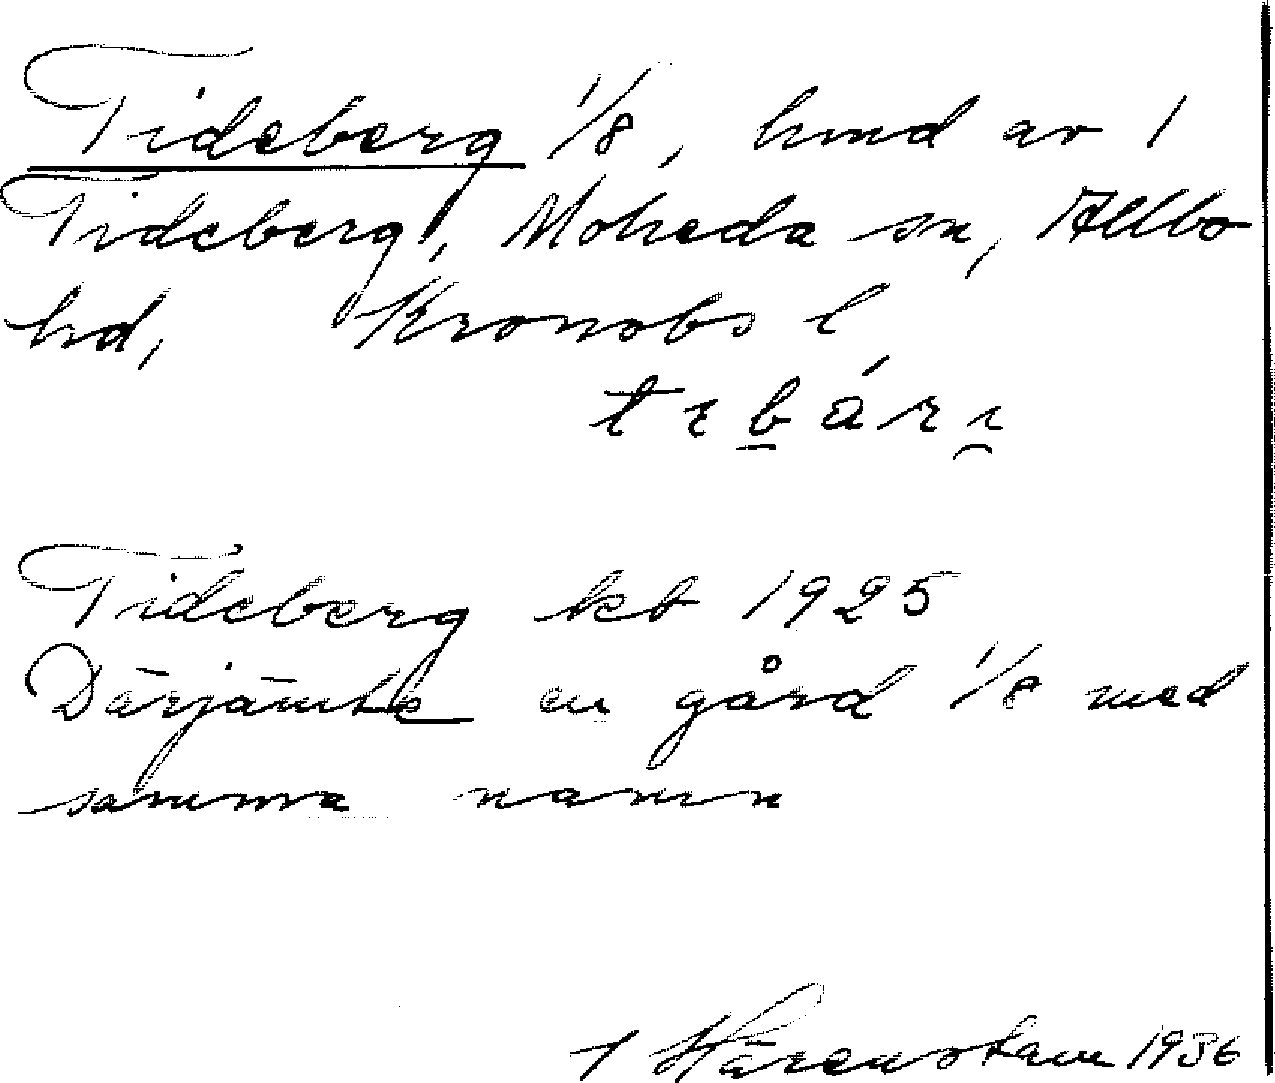 Tideberg 1/8, hmd av 1
Tideberg, Moheda sn, Allbo
hd, Kronobs l
Tideberg kt 1925
Därjämte en gård 1/8 med
samma namn
Härenstam 1936